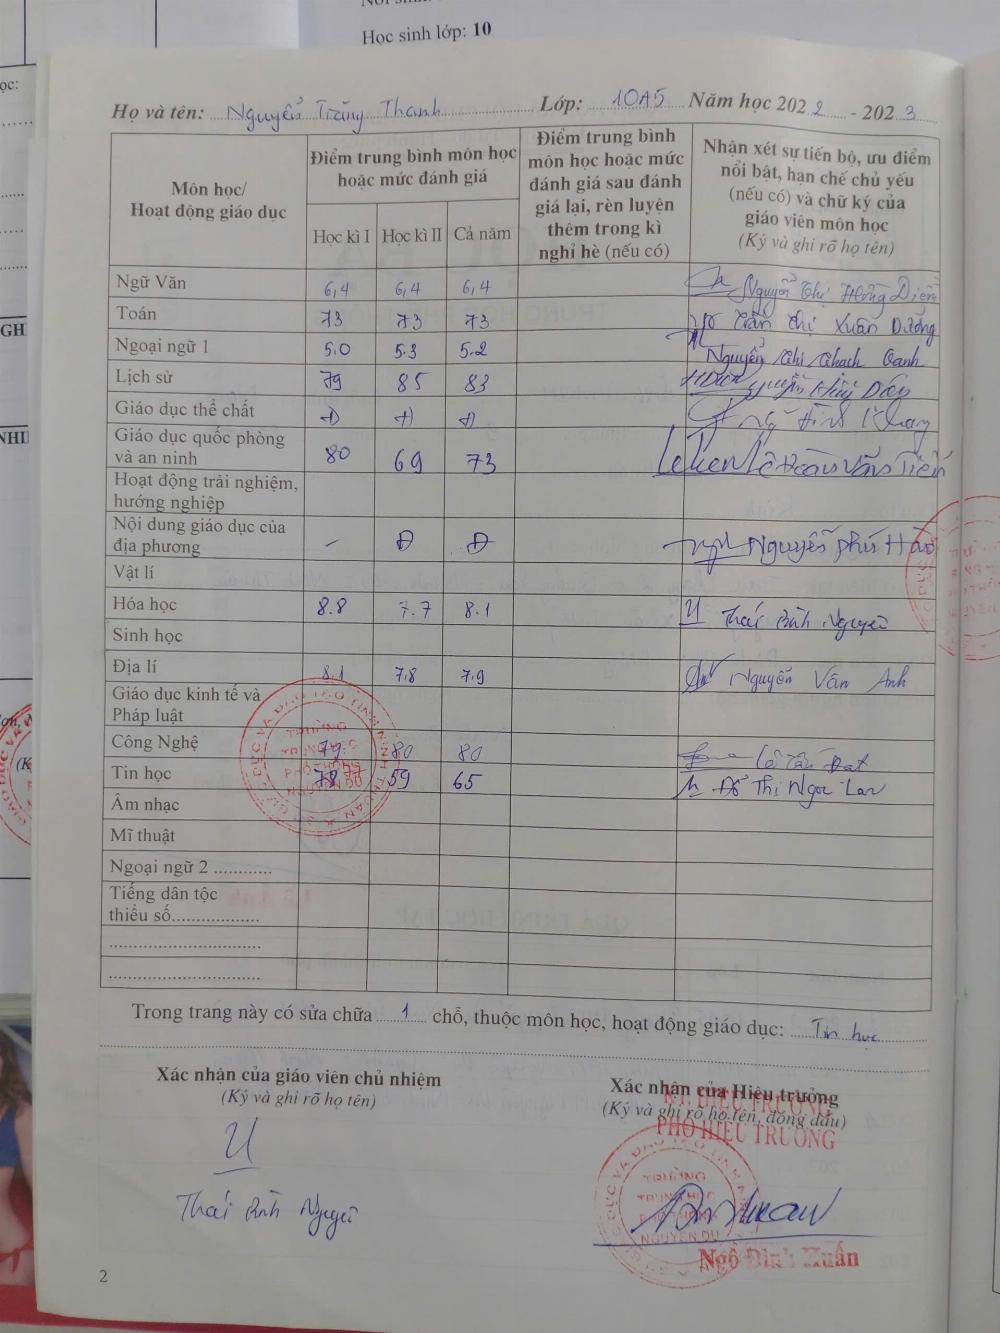 Học sinh lớp: 10
Họ và tên: Nguyễn Trăng Thanh Lớp: 10A5 Năm học 2022 - 2023
Môn học/ Hoạt động giáo dục
Điểm trung bình môn học hoặc mức đánh giá
Học kì I Học kì II Cả năm
Điểm trung bình môn học hoặc mức đánh giá sau đánh giá lại, rèn luyện thêm trong kì nghỉ hè (nếu có)
Nhận xét sự tiến bộ, ưu điểm nổi bật, hạn chế chủ yếu (nếu có) và chữ ký của giáo viên môn học
(Ký và ghi rõ họ tên)
Ngữ Văn 6,4 6,4 6,4 Nguyễn Thị Hồng Diễm
Toán 73 73 73 Trần Thị Xuân Dương
Ngoại ngữ 1 5.0 5.3 5.2 Nguyễn Thị Thạch Oanh
Lịch sử 79 85 83
Giáo dục thể chất Đ Đ Đ
Giáo dục quốc phòng và an ninh 80 69 73 Lê Đoàn Văn Tiến
Hoạt động trải nghiệm, hướng nghiệp
Nội dung giáo dục của địa phương - Đ Đ Nguyễn Phú Hào
Vật lí
Hóa học 8.8 7.7 8.1 Thái Bình Nguyên
Sinh học
Địa lí 8.1 7.8 7.9 Nguyễn Vân Anh
Giáo dục kinh tế và Pháp luật
Công Nghệ 79 80 80 Lê Tấn Đạt
Tin học 77 59 65 Đỗ Thị Ngọc Lan
Âm nhạc
Mĩ thuật
Ngoại ngữ 2 ............
Tiếng dân tộc thiểu số..................
Trong trang này có sửa chữa 1 chỗ, thuộc môn học, hoạt động giáo dục: Tin học
Xác nhận của giáo viên chủ nhiệm
(Ký và ghi rõ họ tên)
Thái Bình Nguyên
Xác nhận của Hiệu trưởng
(Ký và ghi rõ họ tên, đóng dấu)
KT. HIỆU TRƯỞNG
PHÓ HIỆU TRƯỞNG
TRƯỜNG
TRUNG HỌC
PHỔ THÔNG
NGUYỄN DU
Ngô Đình Huấn
2